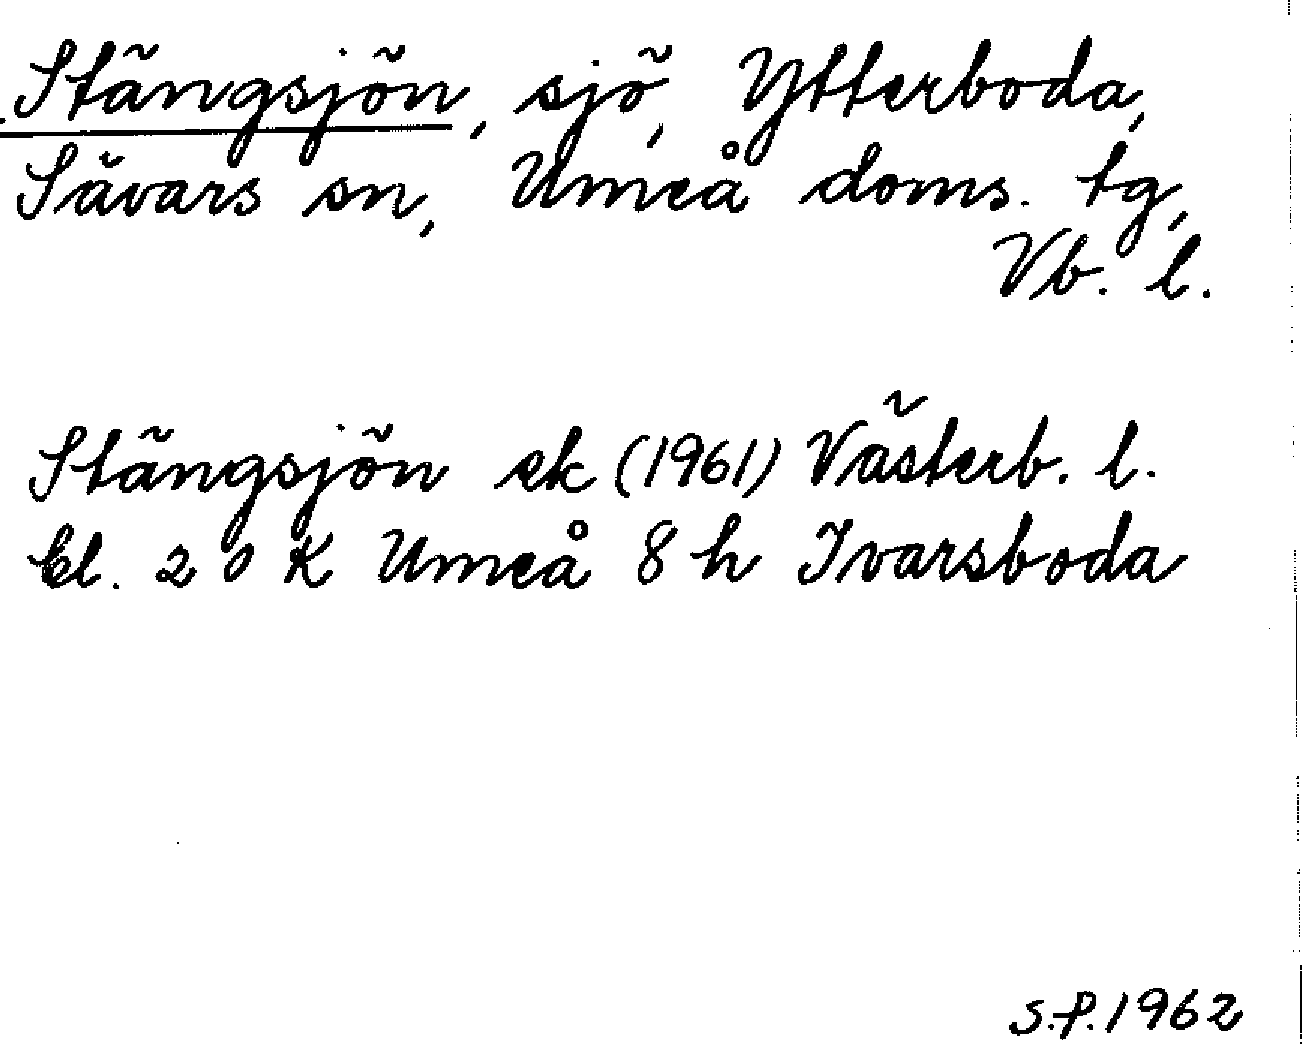 Stängsjön, sjö, Ytterboda,
Sävars sn, Umeå doms. tg,
Vb. l.
Stängsjön ek (1961) Västerb. l.
bl. 20 K Umeå 8 h Ivarsboda
S.P. 1962